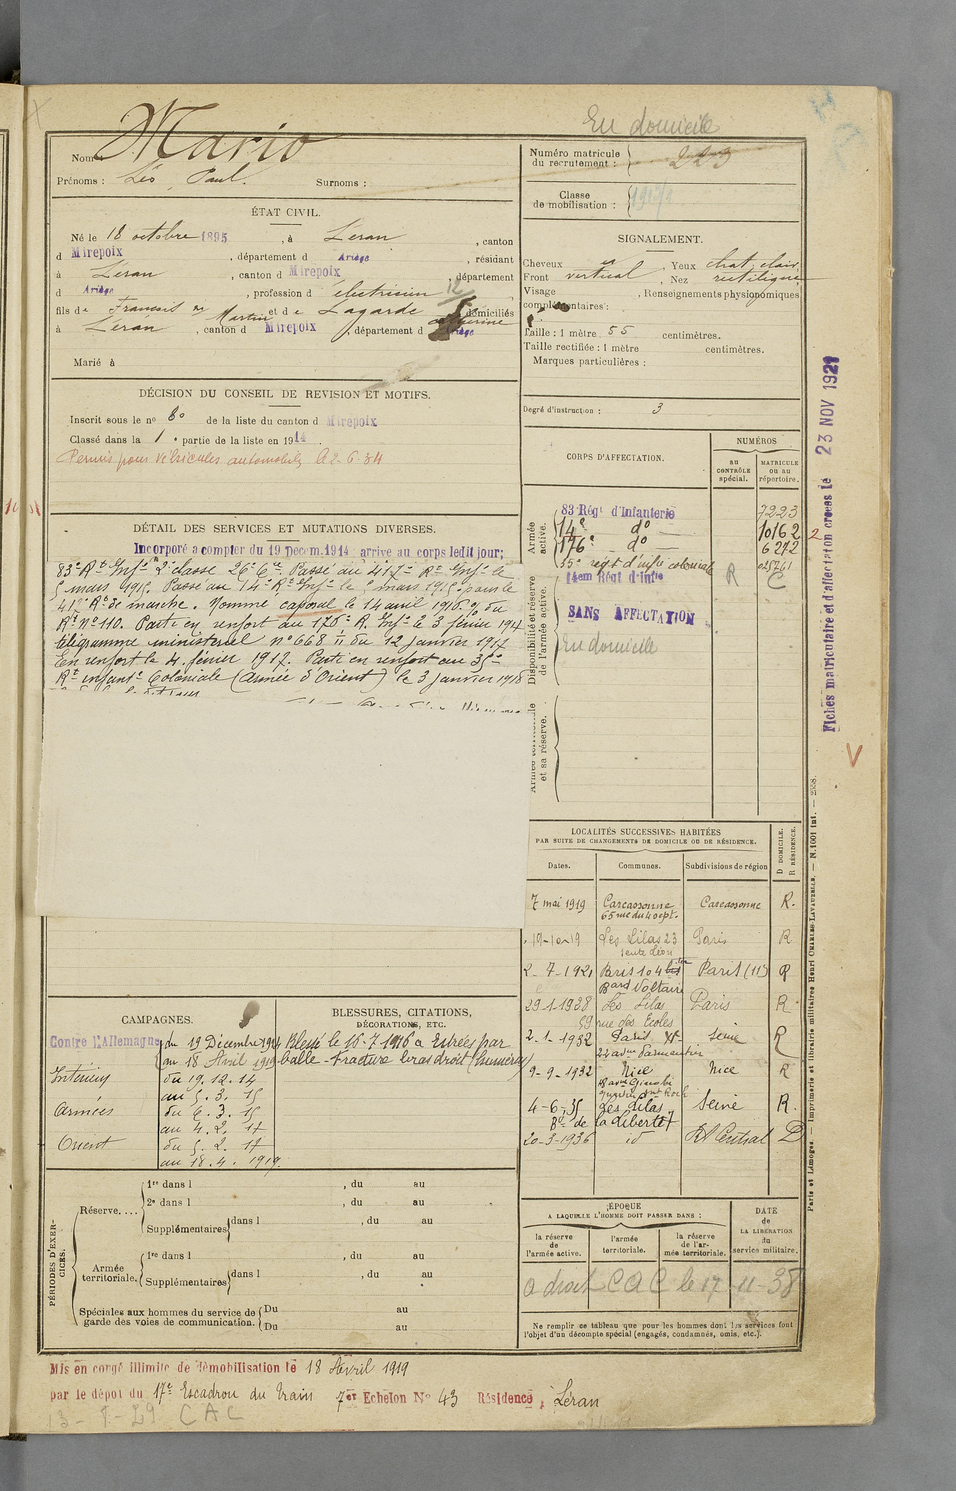 En domicile
Nom Mario
Prénoms : Léo, Paul. Surnoms :
ÉTAT CIVIL.
Né le 18 octobre 1895, à Léran, canton
d Mirepoix, département d Ariège, résidant
à Léran, canton d Mirepoix, département
d Ariège, profession d électricien 12
fils de François Martin et de Lagarde domiciliés
à Léran, canton d Mirepoix, département d Ariège
Marié à
DÉCISION DU CONSEIL DE REVISION ET MOTIFS.
Inscrit sous le n° de la liste du canton d Mirepoix
Classé dans la 1e partie de la liste en 1914.
Permis pour véhicules automobiles le 2-6-34
DÉTAIL DES SERVICES ET MUTATIONS DIVERSES.
Incorporé a compter du 19 Decem. 1914 : arrive au corps ledit jour;
83e Rt Infie 2e classe 26e Cie. Passé au 417e Rt Infie le
5 mars 1915. Passé au 14e Rt Infie le mars 1915. puis le
417e Rt de marche. Nommé caporal le 14 avril 1916 % du
Rt N° 110. Parti en renfort au 176e R. Infie le 3 février 1917
télégramme ministeriel n° 668 1/11 du 12 janvier 1917
En renfort le 4 février 1917. Parti en renfort au 35e
Rt infantie Coloniale (Armée d'Orient) le 3 janvier 1918
CAMPAGNES.
Contre l'Allemagne du 19 Décembre 1914
au 18 Avril 1919
Intérieur du 19.12.14
au 5.3.15
Armées du 6.3.15
au 4.2.17
Orient du 5.2.17
au 18.4.1919.
BLESSURES, CITATIONS,
DÉCORATIONS, ETC.
Blessé le 16-7-1916 à Estrées par
balle - Fracture bras droit (humérus)
PÉRIODES D'EXERCICES.
Réserve....
1re dans l , du au
2e dans l , du au
Supplémentaires dans l , du au
Armée territoriale.
1re dans l , du au
Supplémentaires dans l , du au
Spéciales aux hommes du service de garde des voies de communication.
Du au
Du au
Numéro matricule
du recrutement : 223
Classe
de mobilisation :
SIGNALEMENT.
Cheveux , Yeux chat. clair
Front vertical , Nez rectiligne
Visage , Renseignements physionomiques
complémentaires :
Taille : 1 mètre 55 centimètres.
Taille rectifiée : 1 mètre centimètres.
Marques particulières :
Degré d'instruction : 3
CORPS D'AFFECTATION.
NUMÉROS
au CONTRÔLE spécial.
MATRICULE ou au répertoire.
Armée active.
83e Régt d'Infanterie 7223
14e do 10162
176e do 6272
35e régt d'infie coloniale
14em Régt d'Infie R C
Disponibilité et réserve de l'armée active.
SANS AFFECTATION
En domicile
et sa réserve.
LOCALITÉS SUCCESSIVES HABITÉES
PAR SUITE DE CHANGEMENTS DE DOMICILE OU DE RÉSIDENCE.
Dates. Communes. Subdivisions de région D DOMICILE. R RÉSIDENCE.
7 mai 1919 Carcassonne Carcassonne R.
65 rue du 4 sept.
Les Lilas 23 Paris R
sente Léon
2-7-1921 Paris 104 bis Paris (11e) R
Bard Voltaire
29-1-1928 Les Lilas Paris R
59 rue des Ecoles
2-1-1932 Paris XIe Seine R
22 avue Parmentier
9-9-1932 Nice Nice R
4-6-35 Les Lilas Seine R.
Bd de la Liberté
20-3-1936 id Rt Central D
ÉPOQUE
A LAQUELLE L'HOMME DOIT PASSER DANS :
la réserve de l'armée active.
l'armée territoriale.
la réserve de l'armée territoriale.
DATE de LA LIBÉRATION du service militaire.
a droit CAC le 17-11-38
Ne remplir ce tableau que pour les hommes dont les services font
l'objet d'un décompte spécial (engagés, condamnés, omis, etc.).
Mis en congé illimité de démobilisation le 18 Avril 1919
par le dépot du 17e Escadron du Train 7er Echelon N° 43 Résidence, Léran
CAC
Fiches matriculaire et d'affectation créées le 23 NOV 1921
V
Paris et Limoges. — Imprimerie et librairie militaires Henri CHARLES-LAVAUZELLE. — N. 1001 int. — 2558.